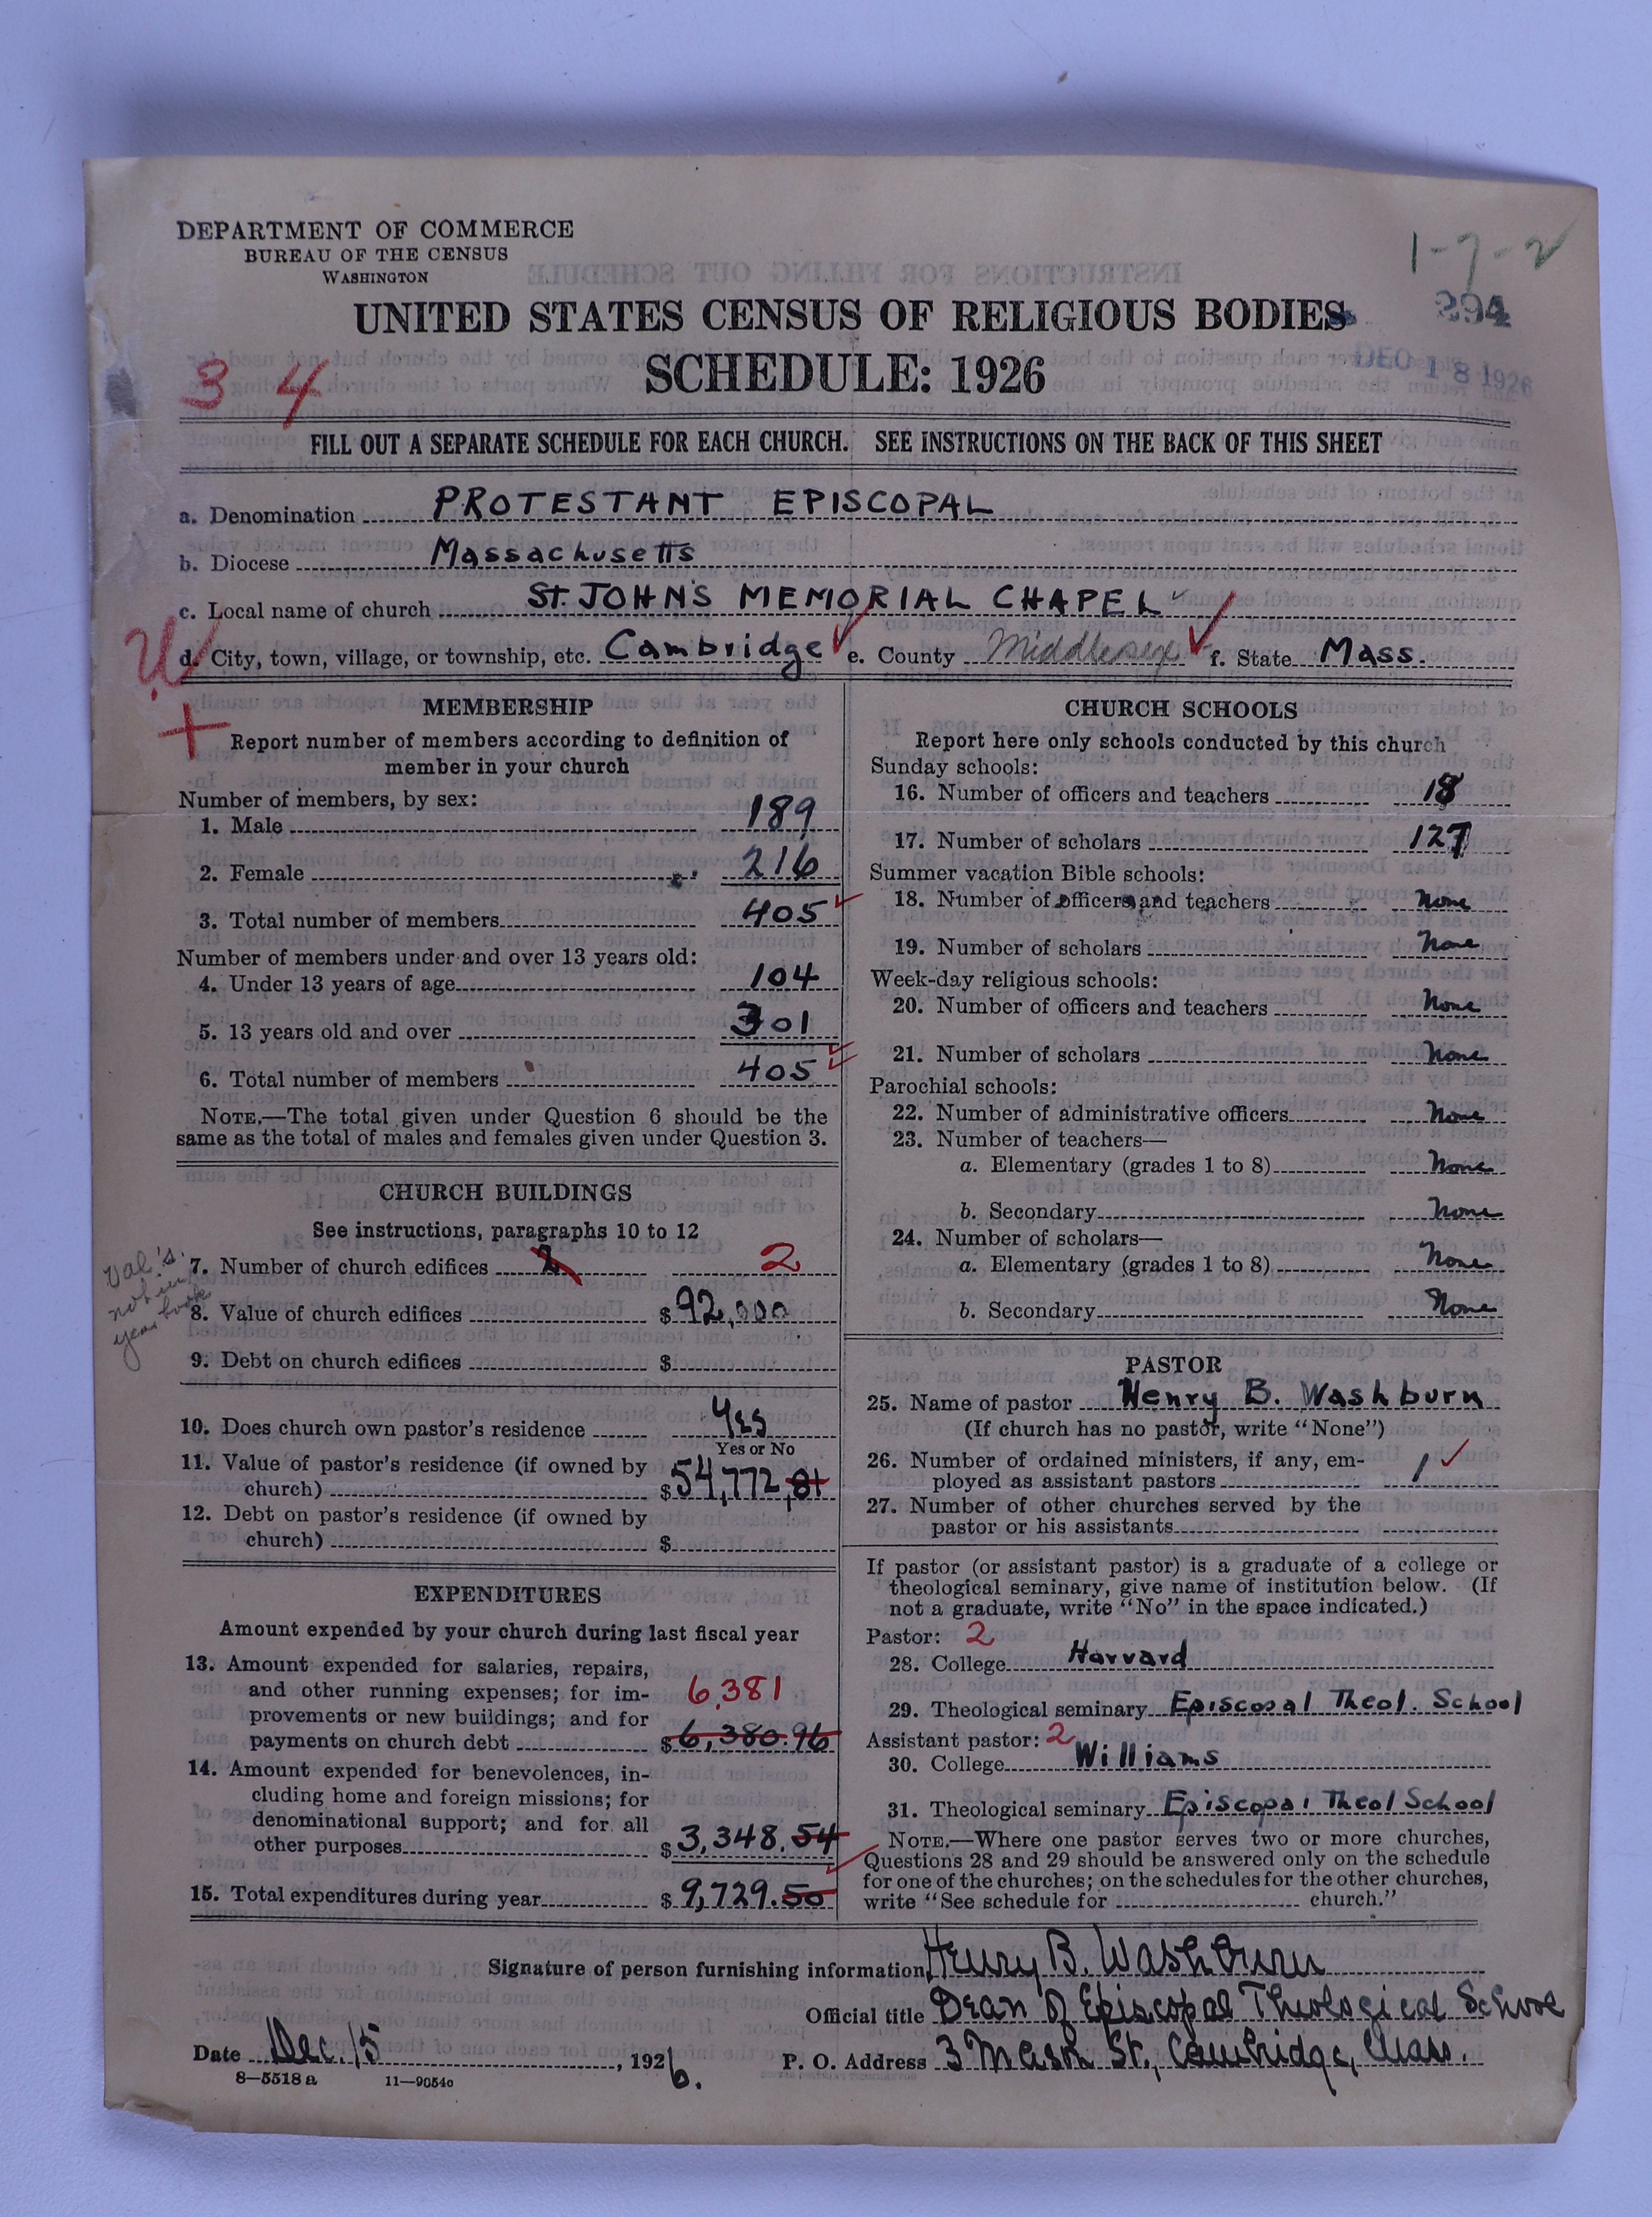 DEPARTMENT OF COMMERCE
BUREAU OF THE CENSUS
WASHINGTON
1-7-2
294
UNITED STATES CENSUS OF RELIGIOUS BODIES
SCHEDULE: 1926
DEC 18 1926
3 4
FILL OUT A SEPARATE SCHEDULE FOR EACH CHURCH. SEE INSTRUCTIONS ON THE BACK OF THIS SHEET
a. Denomination PROTESTANT EPISCOPAL
b. Diocese Massachusetts
c. Local name of church ST. JOHN'S MEMORIAL CHAPEL
d. City, town, village, or township, etc. Cambridge e. County Middlesex f. State Mass.
MEMBERSHIP
Report number of members according to definition of
member in your church
Number of members, by sex:
1. Male 189
2. Female 216
3. Total number of members 405
Number of members under and over 13 years old:
4. Under 13 years of age 104
5. 13 years old and over 301
6. Total number of members 405
NOTE.—The total given under Question 6 should be the
same as the total of males and females given under Question 3.
CHURCH BUILDINGS
See instructions, paragraphs 10 to 12
Val's.
not in
year book
7. Number of church edifices 2 2
8. Value of church edifices $92,000
9. Debt on church edifices $
10. Does church own pastor's residence Yes
Yes or No
11. Value of pastor's residence (if owned by
church) $54,772.81
12. Debt on pastor's residence (if owned by
church) $
EXPENDITURES
Amount expended by your church during last fiscal year
13. Amount expended for salaries, repairs,
and other running expenses; for im-
provements or new buildings; and for
payments on church debt 6,381 $6,380.96
14. Amount expended for benevolences, in-
cluding home and foreign missions; for
denominational support; and for all
other purposes $3,348.54
15. Total expenditures during year $9,729.50
CHURCH SCHOOLS
Report here only schools conducted by this church
Sunday schools:
16. Number of officers and teachers 18
17. Number of scholars 127
Summer vacation Bible schools:
18. Number of officers and teachers None
19. Number of scholars None
Week-day religious schools:
20. Number of officers and teachers None
21. Number of scholars None
Parochial schools:
22. Number of administrative officers None
23. Number of teachers—
a. Elementary (grades 1 to 8) None
b. Secondary None
24. Number of scholars—
a. Elementary (grades 1 to 8) None
b. Secondary None
PASTOR
25. Name of pastor Henry B. Washburn
(If church has no pastor, write "None")
26. Number of ordained ministers, if any, em-
ployed as assistant pastors 1
27. Number of other churches served by the
pastor or his assistants
If pastor (or assistant pastor) is a graduate of a college or
theological seminary, give name of institution below. (If
not a graduate, write "No" in the space indicated.)
Pastor: 2
28. College Harvard
29. Theological seminary Episcopal Theol. School
Assistant pastor: 2
30. College Williams
31. Theological seminary Episcopal Theol School
NOTE.—Where one pastor serves two or more churches,
Questions 28 and 29 should be answered only on the schedule
for one of the churches; on the schedules for the other churches,
write "See schedule for church."
Signature of person furnishing information Henry B. Washburn
Official title Dean of Episcopal Theological School
Date Dec. 15, 1926. P. O. Address 3 Mason St., Cambridge, Mass.
8—5518 a 11—9054o